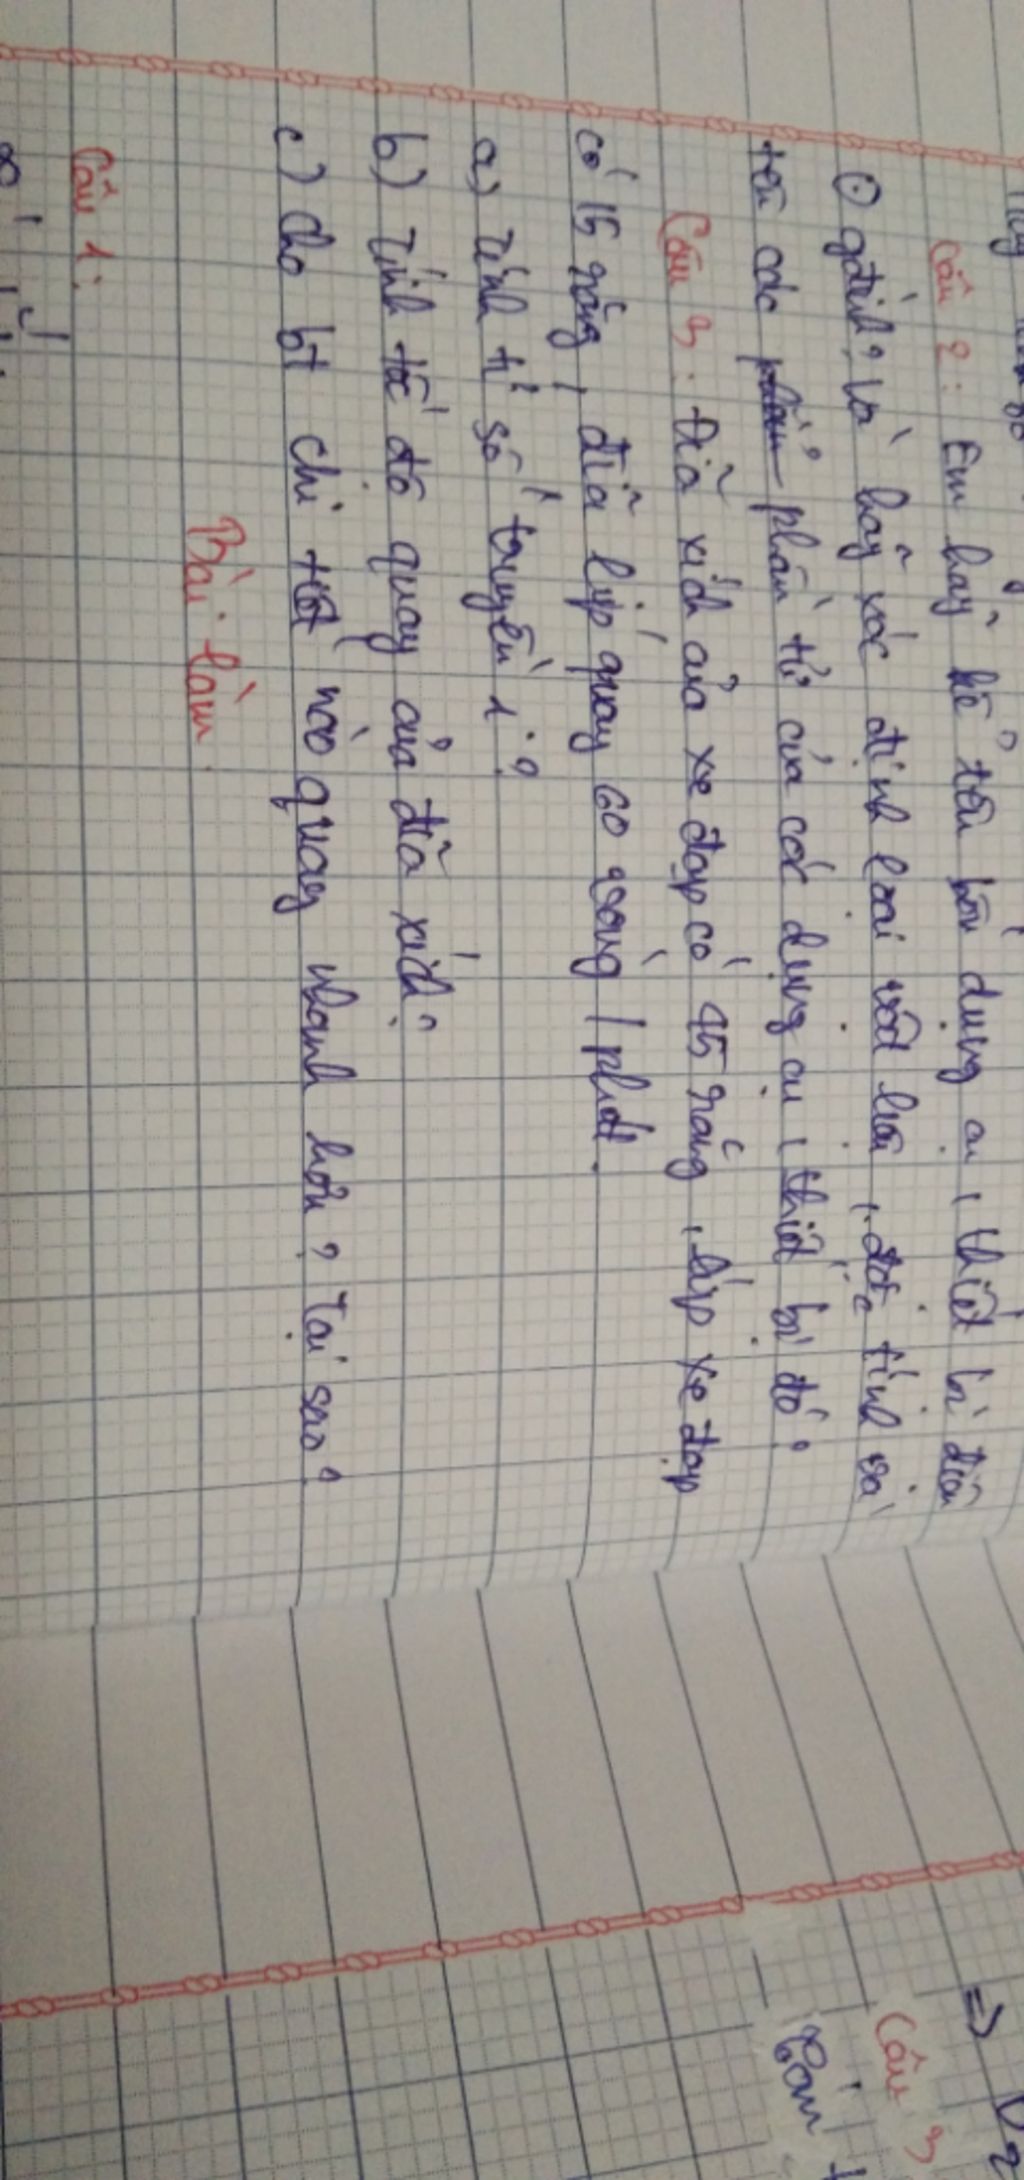 Câu 2: Em hãy kể tên bốn dụng cụ, thiết bị điện
ở gđình? Và hãy xác định loại vật liệu, đặc tính và
tên các phần tử của các dụng cụ, thiết bị đó?
Câu 3: Đĩa xích của xe đạp có 45 răng, líp xe đạp
có 15 răng, đĩa líp quay 60 vòng / phút.
a) Tính tỉ số truyền i?
b) Tính tốc độ quay của đĩa xích?
c) Cho bt chi tiết nào quay nhanh hơn? Tại sao?
Bài làm
Câu 1:
=>
Câu 3